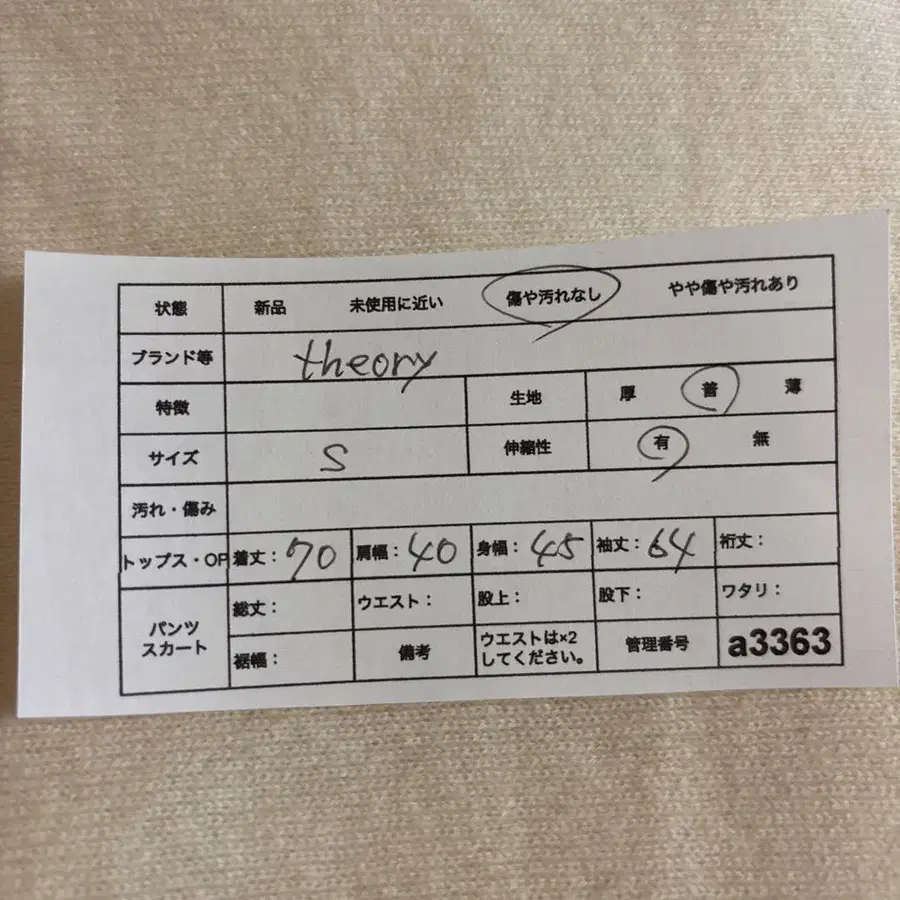 状態 新品 未使用に近い 傷や汚れなし やや傷や汚れあり
ブランド等 theory
特徴 生地 厚 普 薄
サイズ S 伸縮性 有 無
汚れ・傷み
トップス・OP 着丈：70 肩幅：40 身幅：45 袖丈：64 裄丈：
パンツ スカート 総丈： ウエスト： 股上： 股下： ワタリ：
裾幅： 備考 ウエストは×2 してください。 管理番号 a3363